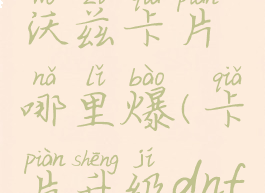 wò zī qiǎ piàn
沃兹卡片
nǎ lǐ bào qiǎ
哪里爆(卡
piàn shēng jí
片升级dnf